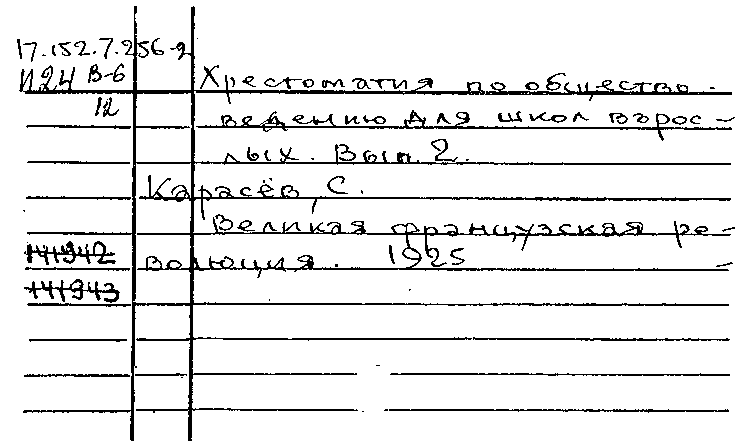 17.152.7.256-2
И24 В-6
12
Хрестоматия по общество-
ведению для школ взрос-
лых. Вып. 2.
Карасёв, С.
Великая французская ре-
141942
волюция. 1925
141943